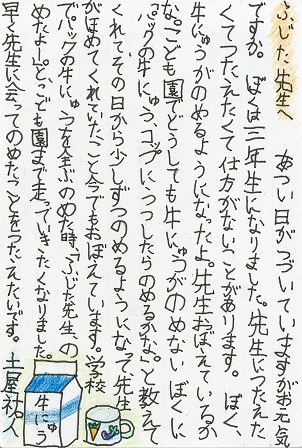 ふじた先生へ
あつい日がつづいていますがお元気
ですか。ぼくは三年生になりました。先生につたえた
くてつたえたくて仕方がないことがあります。ぼく、
牛にゅうがのめるようになったよ。先生おぼえているか
な。こども園でどうしても牛にゅうがのめないぼくに、
「パックの牛にゅう、コップにうつしたらのめるかな。」と教えて
くれて、その日から少しずつのめるようになって、先生
がほめてくれていたこと今でもおぼえています。学校
でパックの牛にゅうを全ぶのめた時、「ふじた先生、の
めたよー。」と、こども園まで走っていきたくなりました。
早く先生に会ってのめたことをつたえたいです。土屋祐人
牛にゅう